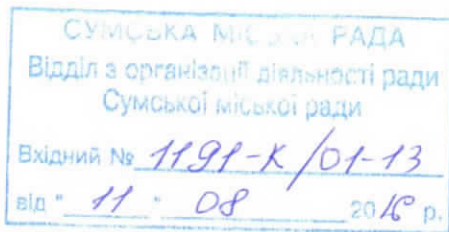 СУМСЬКА МІСЬКА РАДА
Відділ з організації діяльності ради
Сумської міської ради
Вхідний № 1191-К/01-13
від " 11 " 08 2016 р.